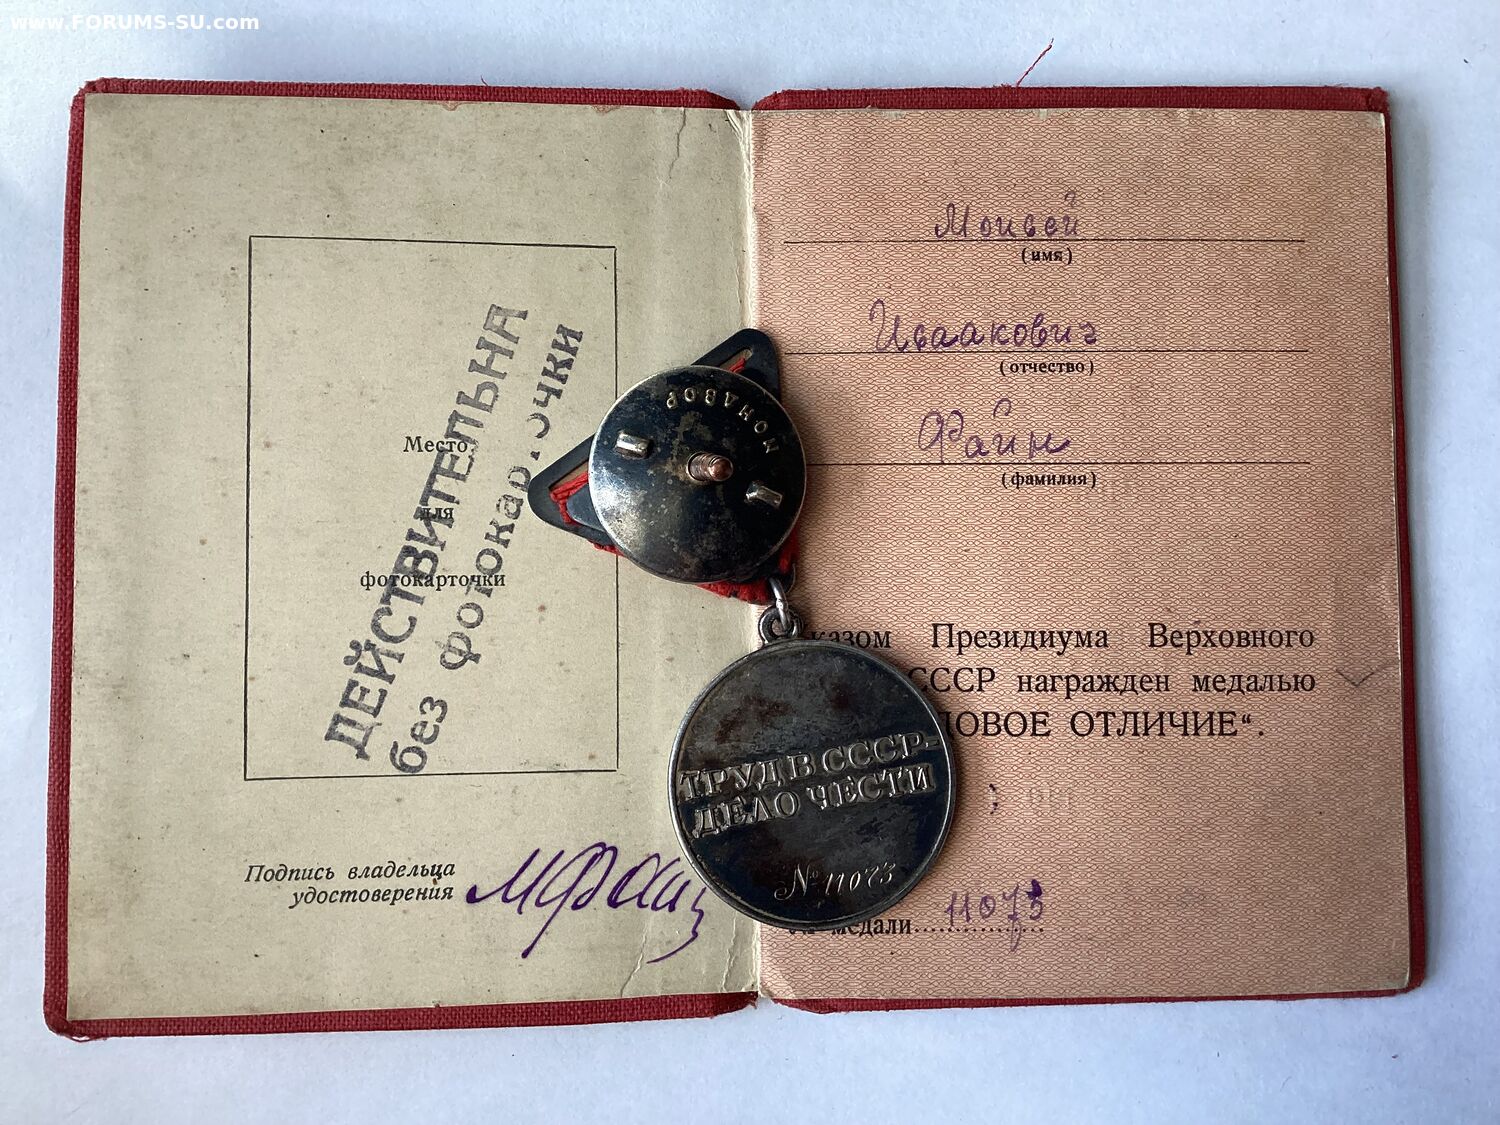 www.FORUMS-SU.com
ДЕЙСТВИТЕЛЬНА
без фотокарточки
Место
для
фотокарточки
Подпись владельца
удостоверения
МФайн
Моисей
(имя)
Исаакович
(отчество)
Файн
(фамилия)
казом Президиума Верховного
СССР награжден медалью
ДОВОЕ ОТЛИЧИЕ“.
медали 11073
МОНДВОР
ТРУД В СССР-
ДЕЛО ЧЕСТИ
№ 11073